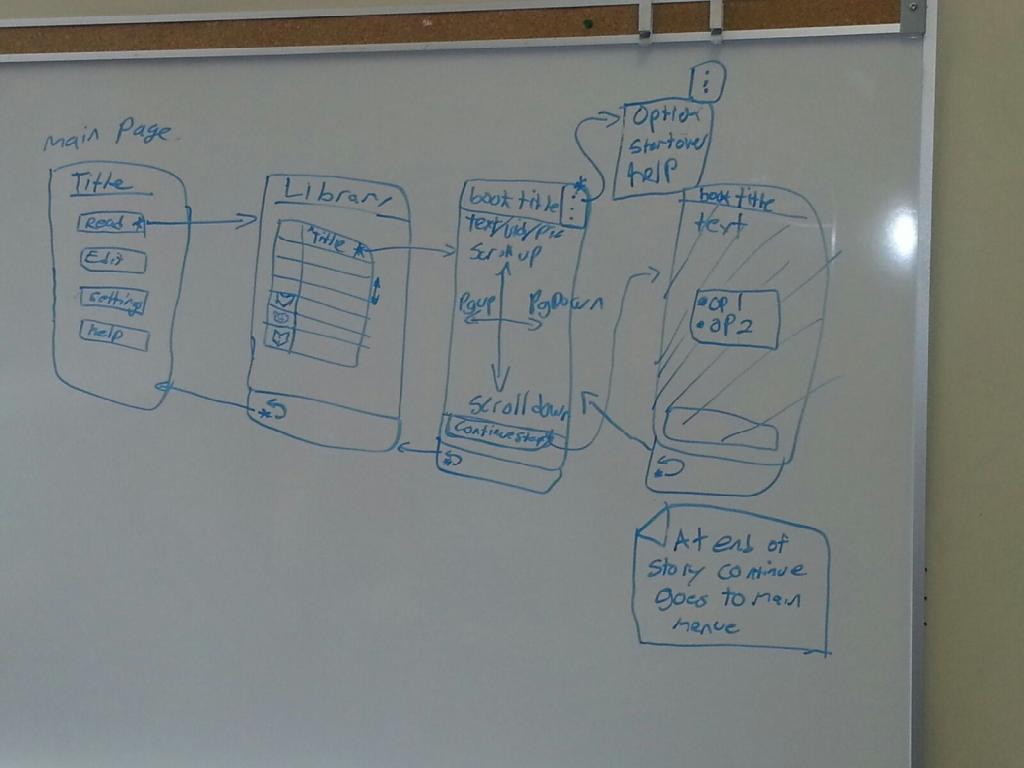 Main Page
Title
Read *
Edit
Setting
help
Library
Title *
book title
text/vid/pic
Scroll up
PgUp
PgDown
Scroll down
Continue
Option
Startover
help
book title
text
• OP 1
• OP 2
At end of
Story continue
goes to main
menue